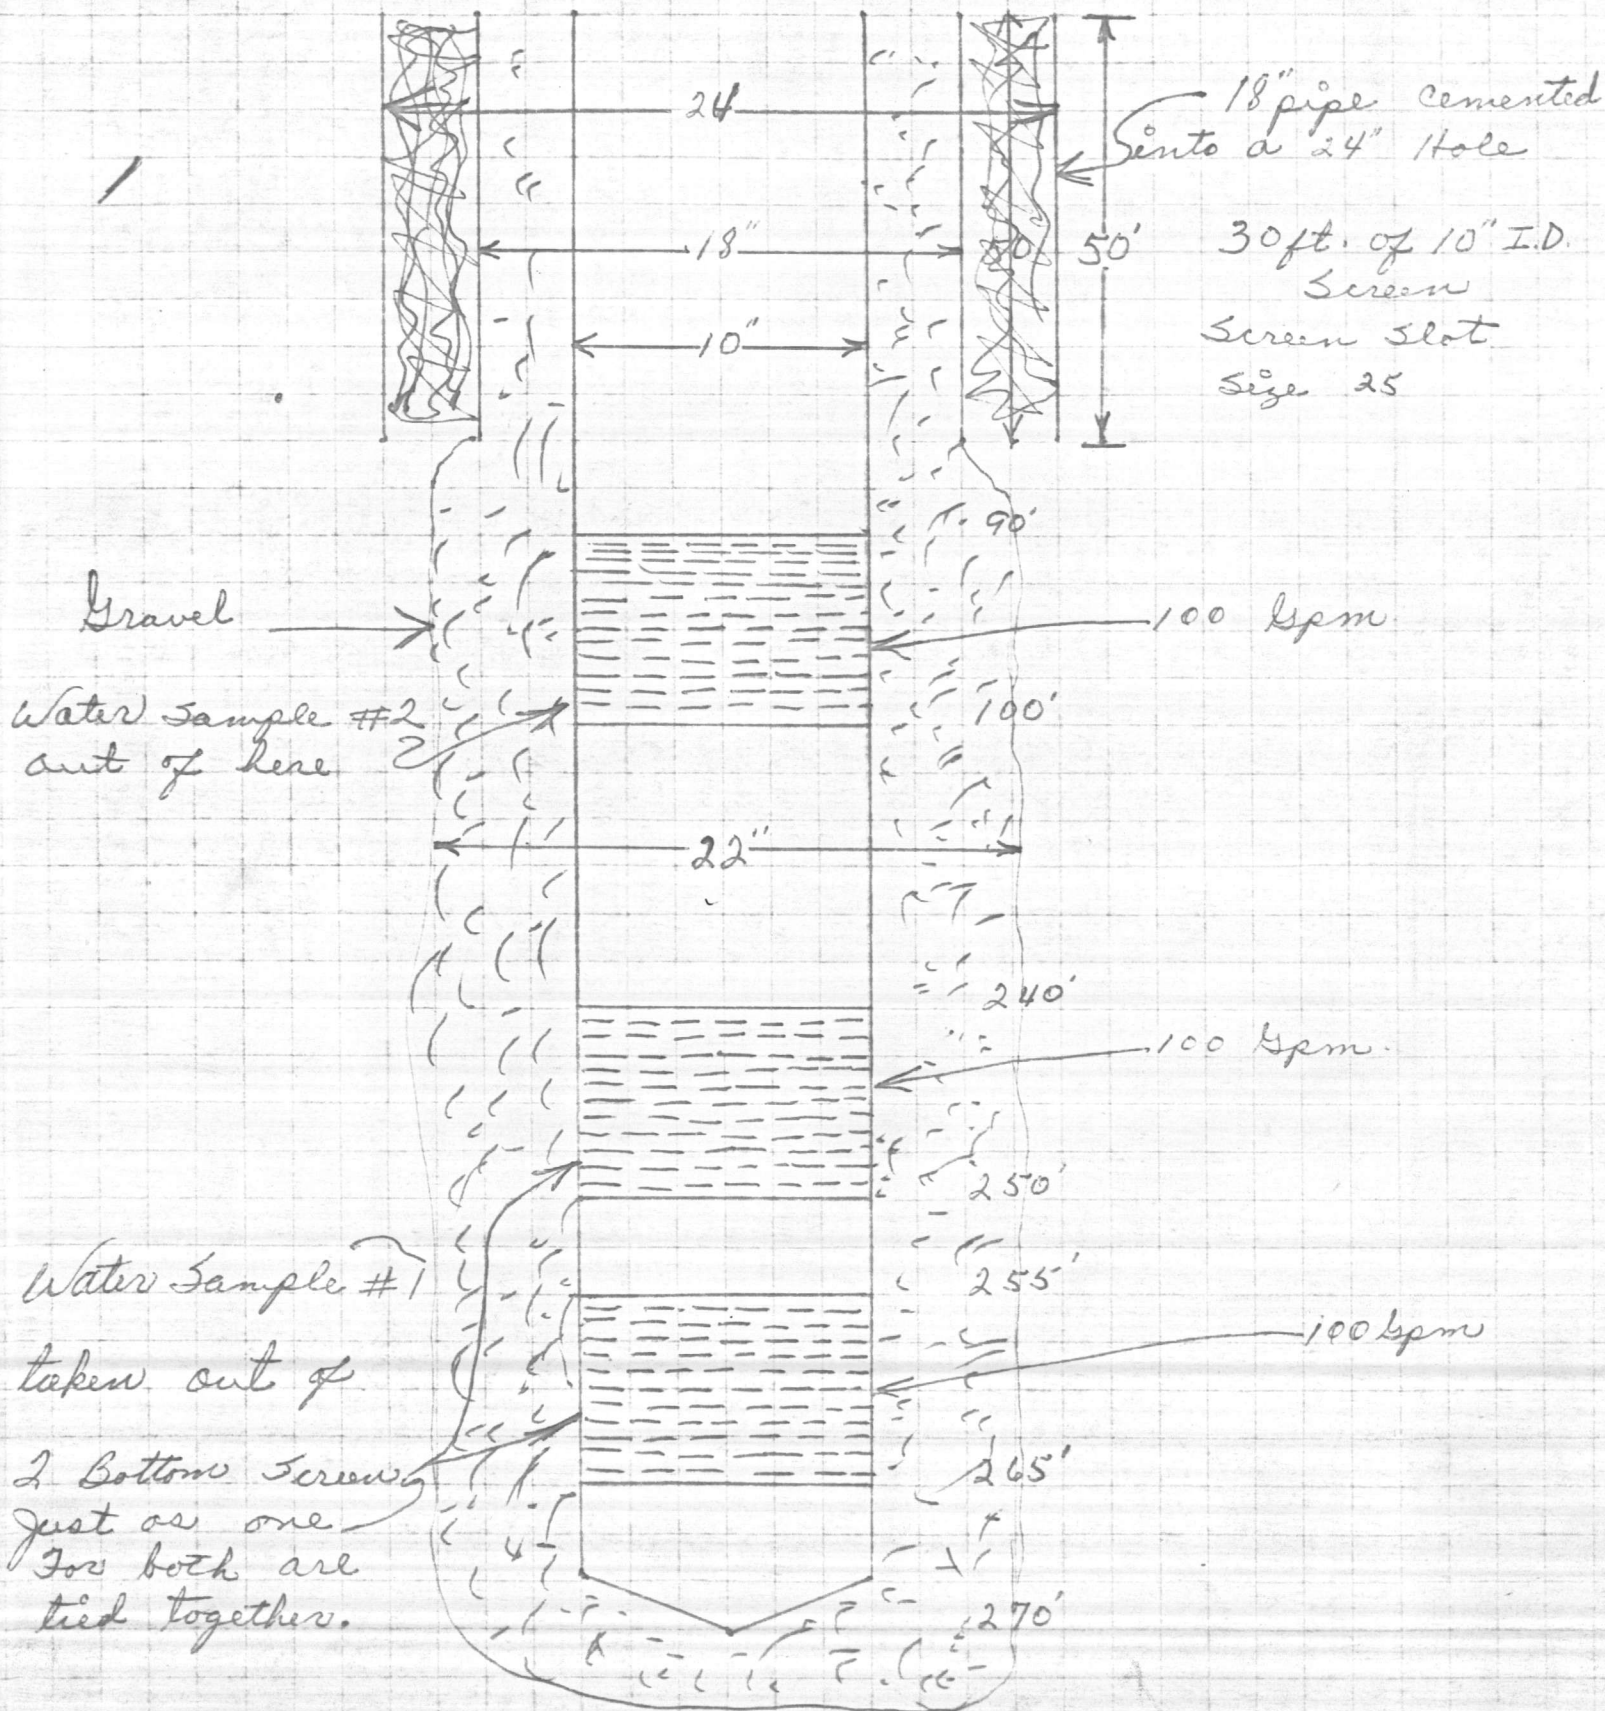 24
18" pipe cemented
into a 24" Hole
18"
50
50'
30 ft. of 10" I.D.
Screen
10"
Screen Slot
Size 25
90'
Gravel
100 Gpm
Water Sample #2
out of here
100'
22"
240'
100 Gpm.
250'
Water Sample #1
255'
100 Gpm
taken out of
2 Bottom Screens
265'
Just as one
For both are
tied together.
270'